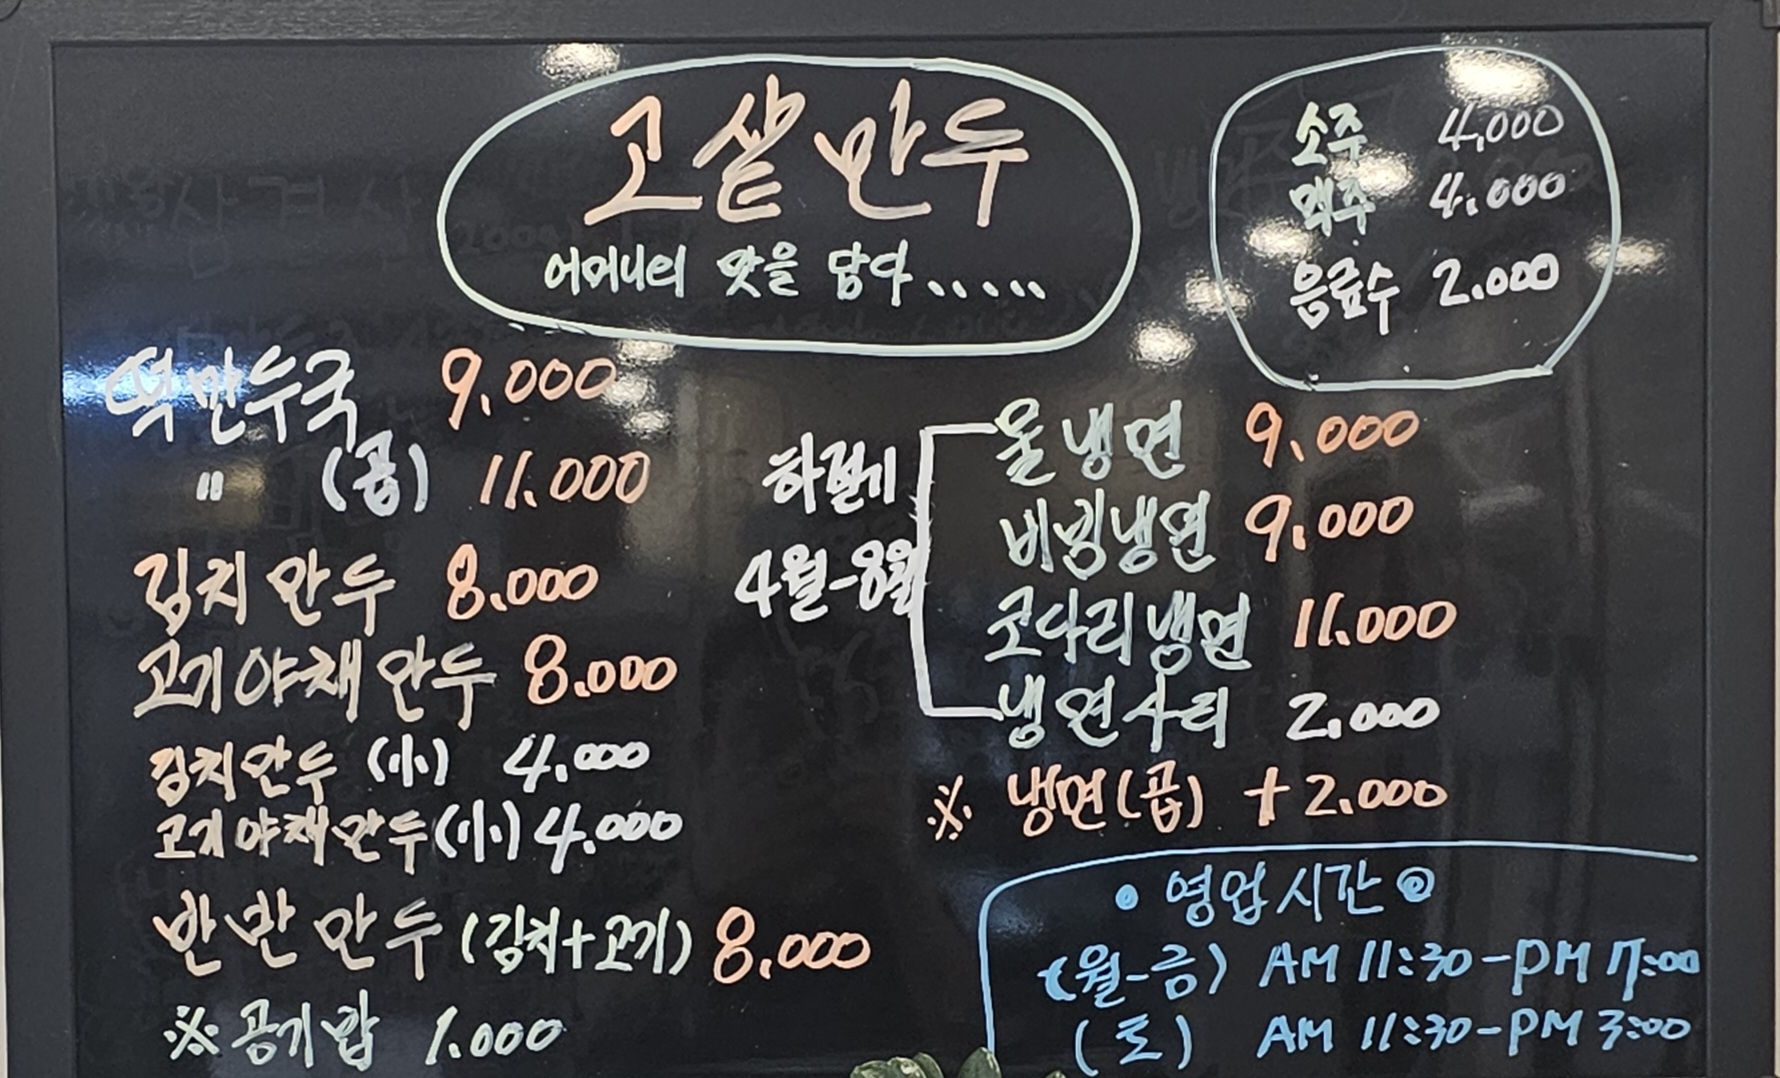 고샅만두
어머니의 맛을 담다.....
소주 4,000
맥주 4.000
음료수 2.000
떡만두국 9,000
" (곱) 11.000
김치만두 8.000
고기야채만두 8.000
김치만두 (小) 4.000
고기야채만두(小) 4.000
반반만두 (김치+고기) 8.000
※공기밥 1.000
하절기
4월-8월
물냉면 9.000
비빔냉면 9.000
코다리냉면 11.000
냉면사리 2.000
※ 냉면(곱) +2.000
영업시간
(월-금) AM 11:30-PM 7:00
(토) AM 11:30-PM 3:00